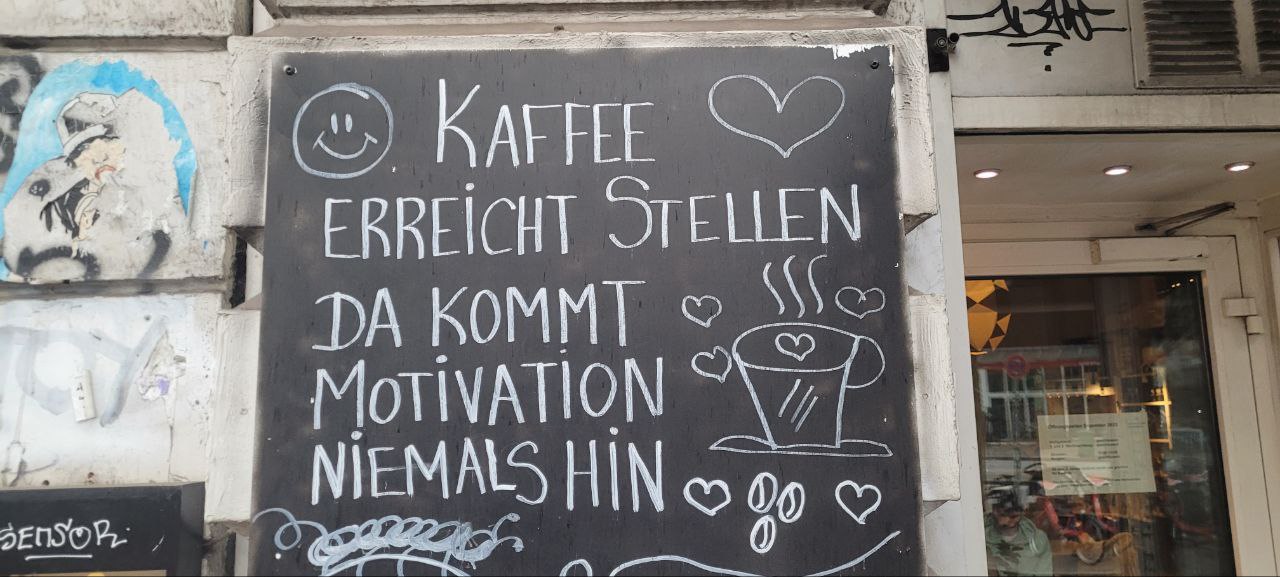 KAFFEE
ERREiCHT STELLEN
DA KOMMT
MOTiVATiON
NiEMALS HiN
SENSOR